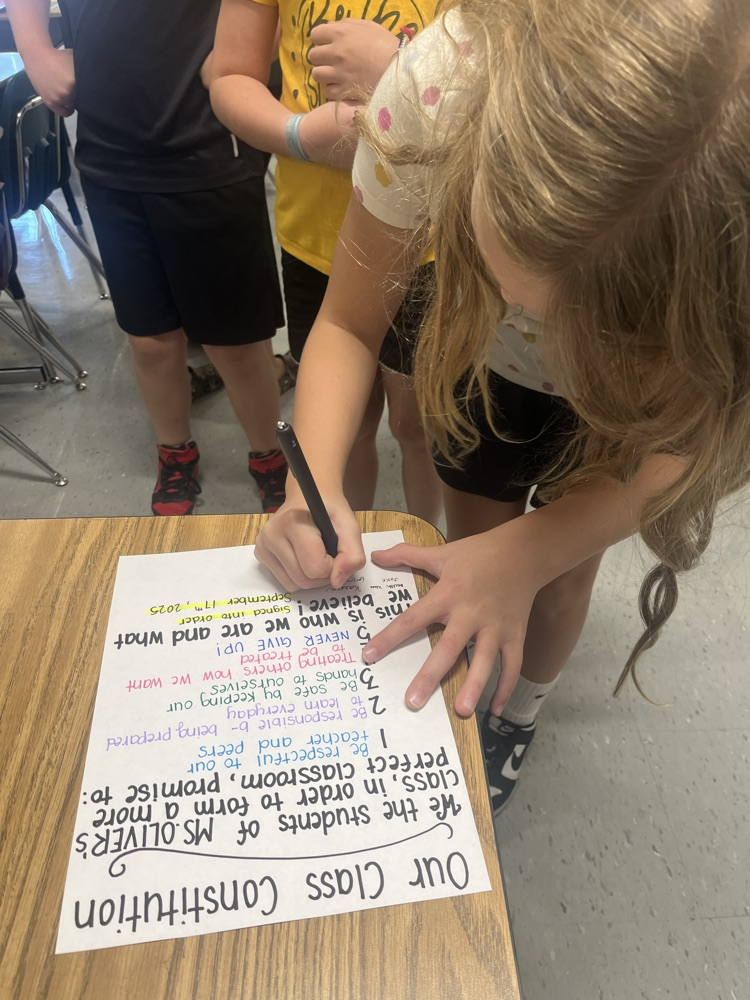 Our Class Constitution
We the students of MS. OLIVER's
class, in order to form a more
perfect classroom, promise to:
1 Be respectful to our
teacher and peers
2 Be responsible b- being prepared
to learn everyday
3 Be safe by keeping our
hands to ourselves
Treating others how we want
to be treated
5 NEVER GIVE UP!
This is who we are and what
we believe!
Signed into order
September 17th, 2025